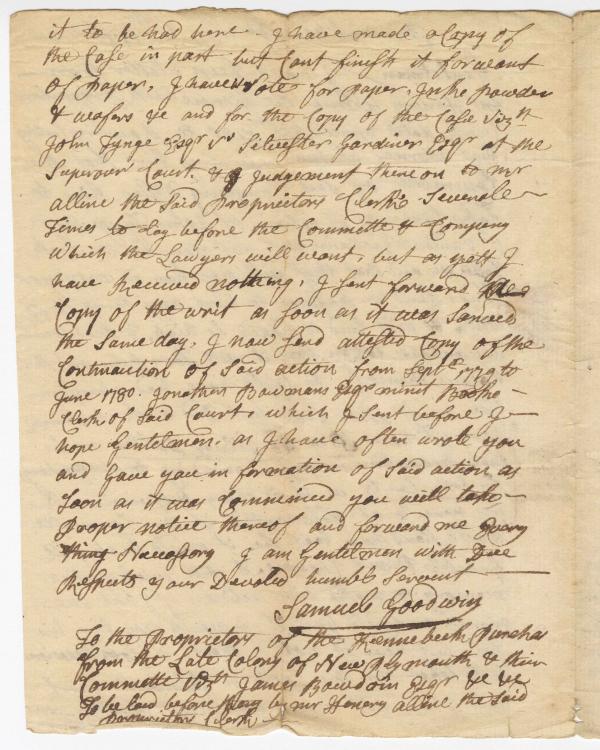 it to be had here. I have made a Copy of
the Case in part but Cant finish it for want
of paper, I have wrote for paper, Inke powder
& wafers &c and for the Copy of the Case Vizt
John Tynge Esqr vs Silvester Gardiner Esqr at the
Superour Court. & judgement there on to mr
alline the Said Proprietors Clerk Severale
Times to Lay before the Committe & Company
Which the Lawyers will want, but as yett I
have Received nothing, I sent forward
Copy of the writ as soon as it was Sarved
the Same day, I now Send attested Copy of the
Continuaction of Said action from Septr 1779 to
June 1780. Jonathan Bowmans Esqrs minit Booke
Clerk, of Said Court, which I sent before I
hope Gentelmen, as I have often wrote you
and Gave you in formation of Said action as
Soon as it was Commined you will take
Proper notice thereof and forward me Every
thing Nacessory I am Gentelmen with Due
Respects your Devoted humble Servent
Samuel Goodwin
To the Proprietors of the Kennebeck Purchas
from the Late Colony of New Plymouth & their
Committe Vizt James Bowdoin Esqr &c &c
To be laid before them by mr Henery alline the Said
Proprietors Clerk